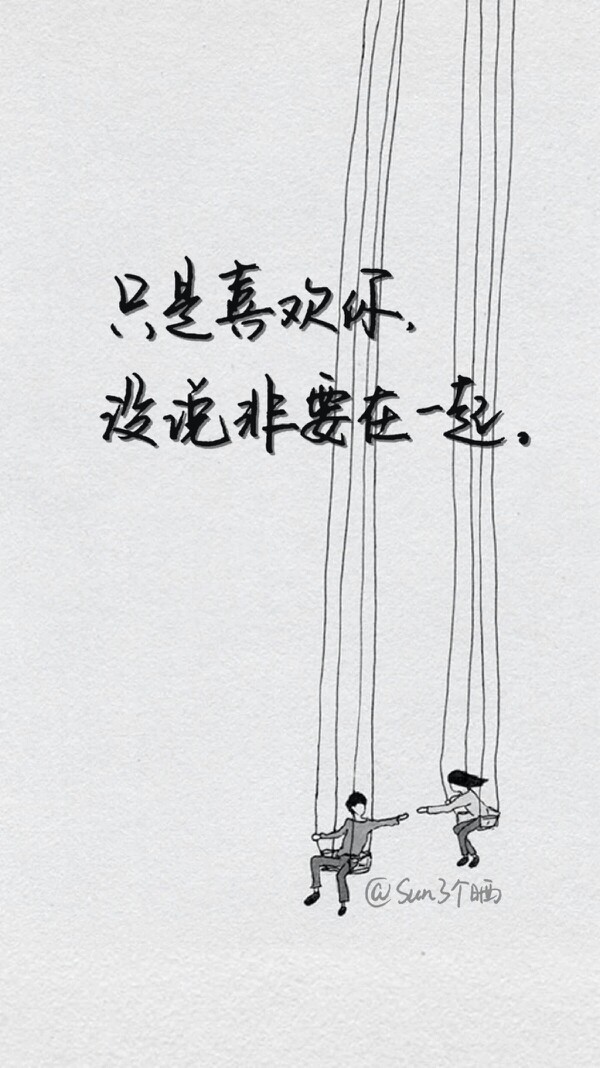 只是喜欢你，
没说非要在一起。
@Sun3个晒